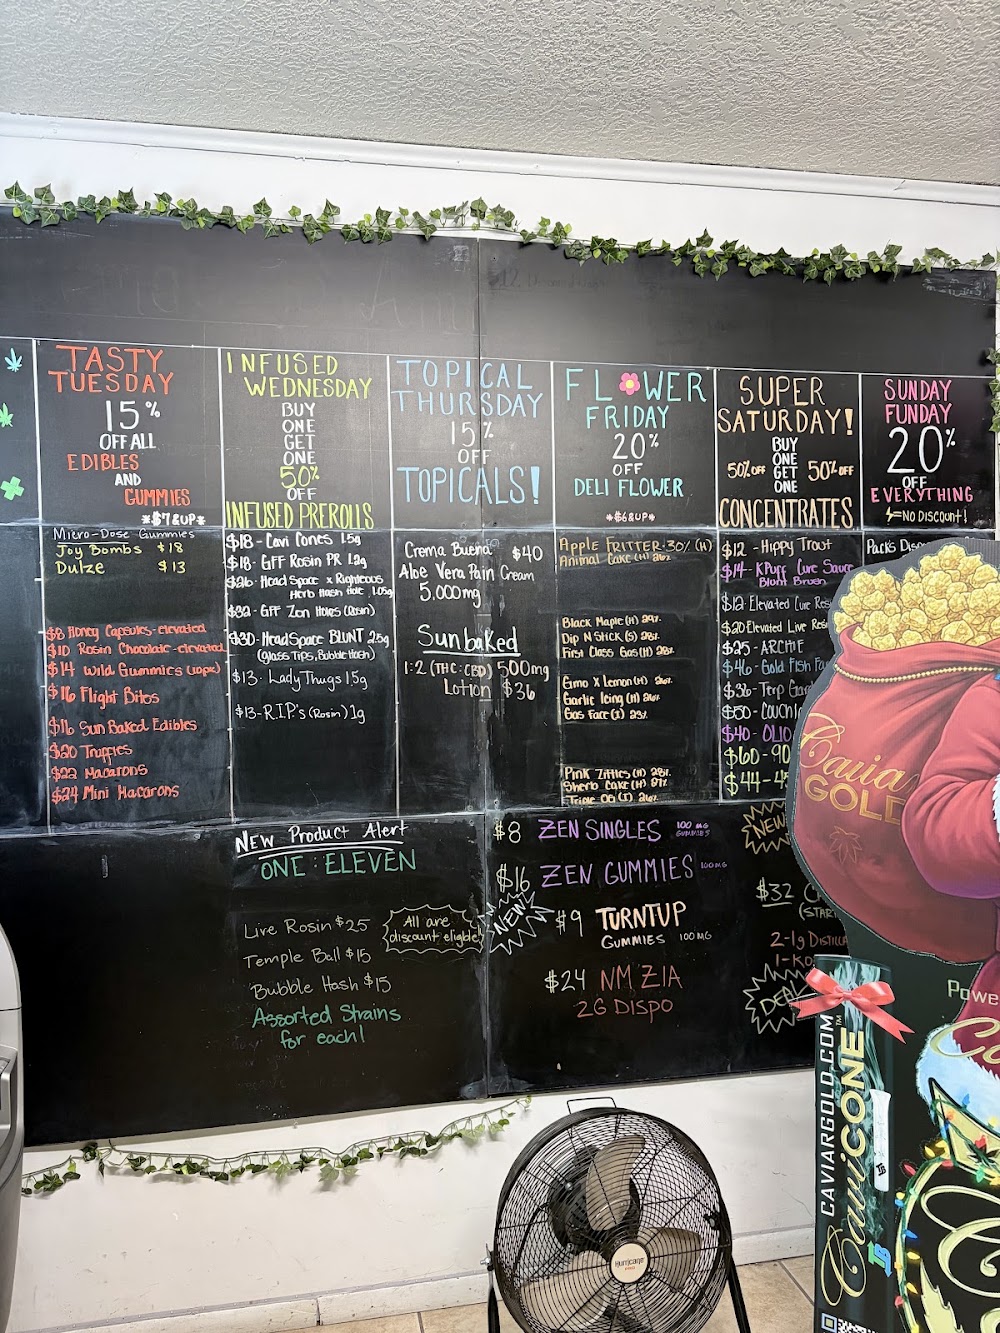 TASTY
TUESDAY
15%
OFF ALL
EDIBLES
AND
GUMMIES
*$7 & UP*
Micro-Dose Gummies
Joy Bombs $18
Dulze $13
$8 Honey Capsules-elevated
$10 Rosin Chocolate-elevated
$14 Wild Gummies (10pk)
$16 Flight Bites
$16 Sun Baked Edibles
$20 Truffles
$22 Macarons
$24 Mini Macarons
INFUSED
WEDNESDAY
BUY
ONE
GET
ONE
50%
OFF
INFUSED PREROLLS
$18 - Cavi Cones 1.5g
$18 - GFF Rosin PR 1.2g
$26 - Head Space x Righteous
Herb Hash Hole 1.05g
$32 - GFF Zen Holes (Rosin)
$30 - HeadSpace BLUNT 2.5g
(Glass Tips, Bubble Hash)
$13 - Lady Thugs 1.5g
$13 - R.I.P.'s (Rosin) 1g
TOPICAL
THURSDAY
15%
OFF
TOPICALS!
Crema Buena $40
Aloe Vera Pain Cream
5,000mg
Sunbaked
1:2 (THC:CBD) 500mg
Lotion $36
FLOWER
FRIDAY
20%
OFF
DELI FLOWER
*$6 & UP*
Apple FRITTER-30% (H)
Animal Cake (H) 26%
Black Maple (H) 29%
Dip N Stick (S) 28%
First Class Gas (H) 28%
Gmo x Lemon (H) 26%
Garlic Icing (H) 26%
Gas Face (I) 23%
Pink Zittles (H) 28%
Sherb Cake (H) 27%
Triple OG (I) 26%
SUPER
SATURDAY!
BUY
ONE
50% OFF GET 50% OFF
ONE
CONCENTRATES
$12 - Hippy Trout
$14 - KPuff Cure Sauce
Blunt Brush
$12 Elevated Cure Res
$20 Elevated Live Res
$25 - ARCHIE
$46 - Gold Fish
$36 - Terp
$50 - COUCH
$40 - OLIO
$60 - 90
$44 - 4
SUNDAY
FUNDAY
20%
OFF
EVERYTHING
=NO DISCOUNT!
Packs
New Product Alert
ONE:ELEVEN
Live Rosin $25
Temple Ball $15
Bubble Hash $15
Assorted Strains
for each!
All are
discount eligible!
$8 ZEN SINGLES 100 MG
GUMMIES
$16 ZEN GUMMIES 100MG
NEW
$9 TURNTUP
GUMMIES 100MG
$24 NM ZIA
2G DISPO
NEW
$32
(STAR
2-1g DISTILL
DEAL
Cavia
GOLD
Powe
CAVIARGOLD.COM
CaviCONE™
TB
Hurricane